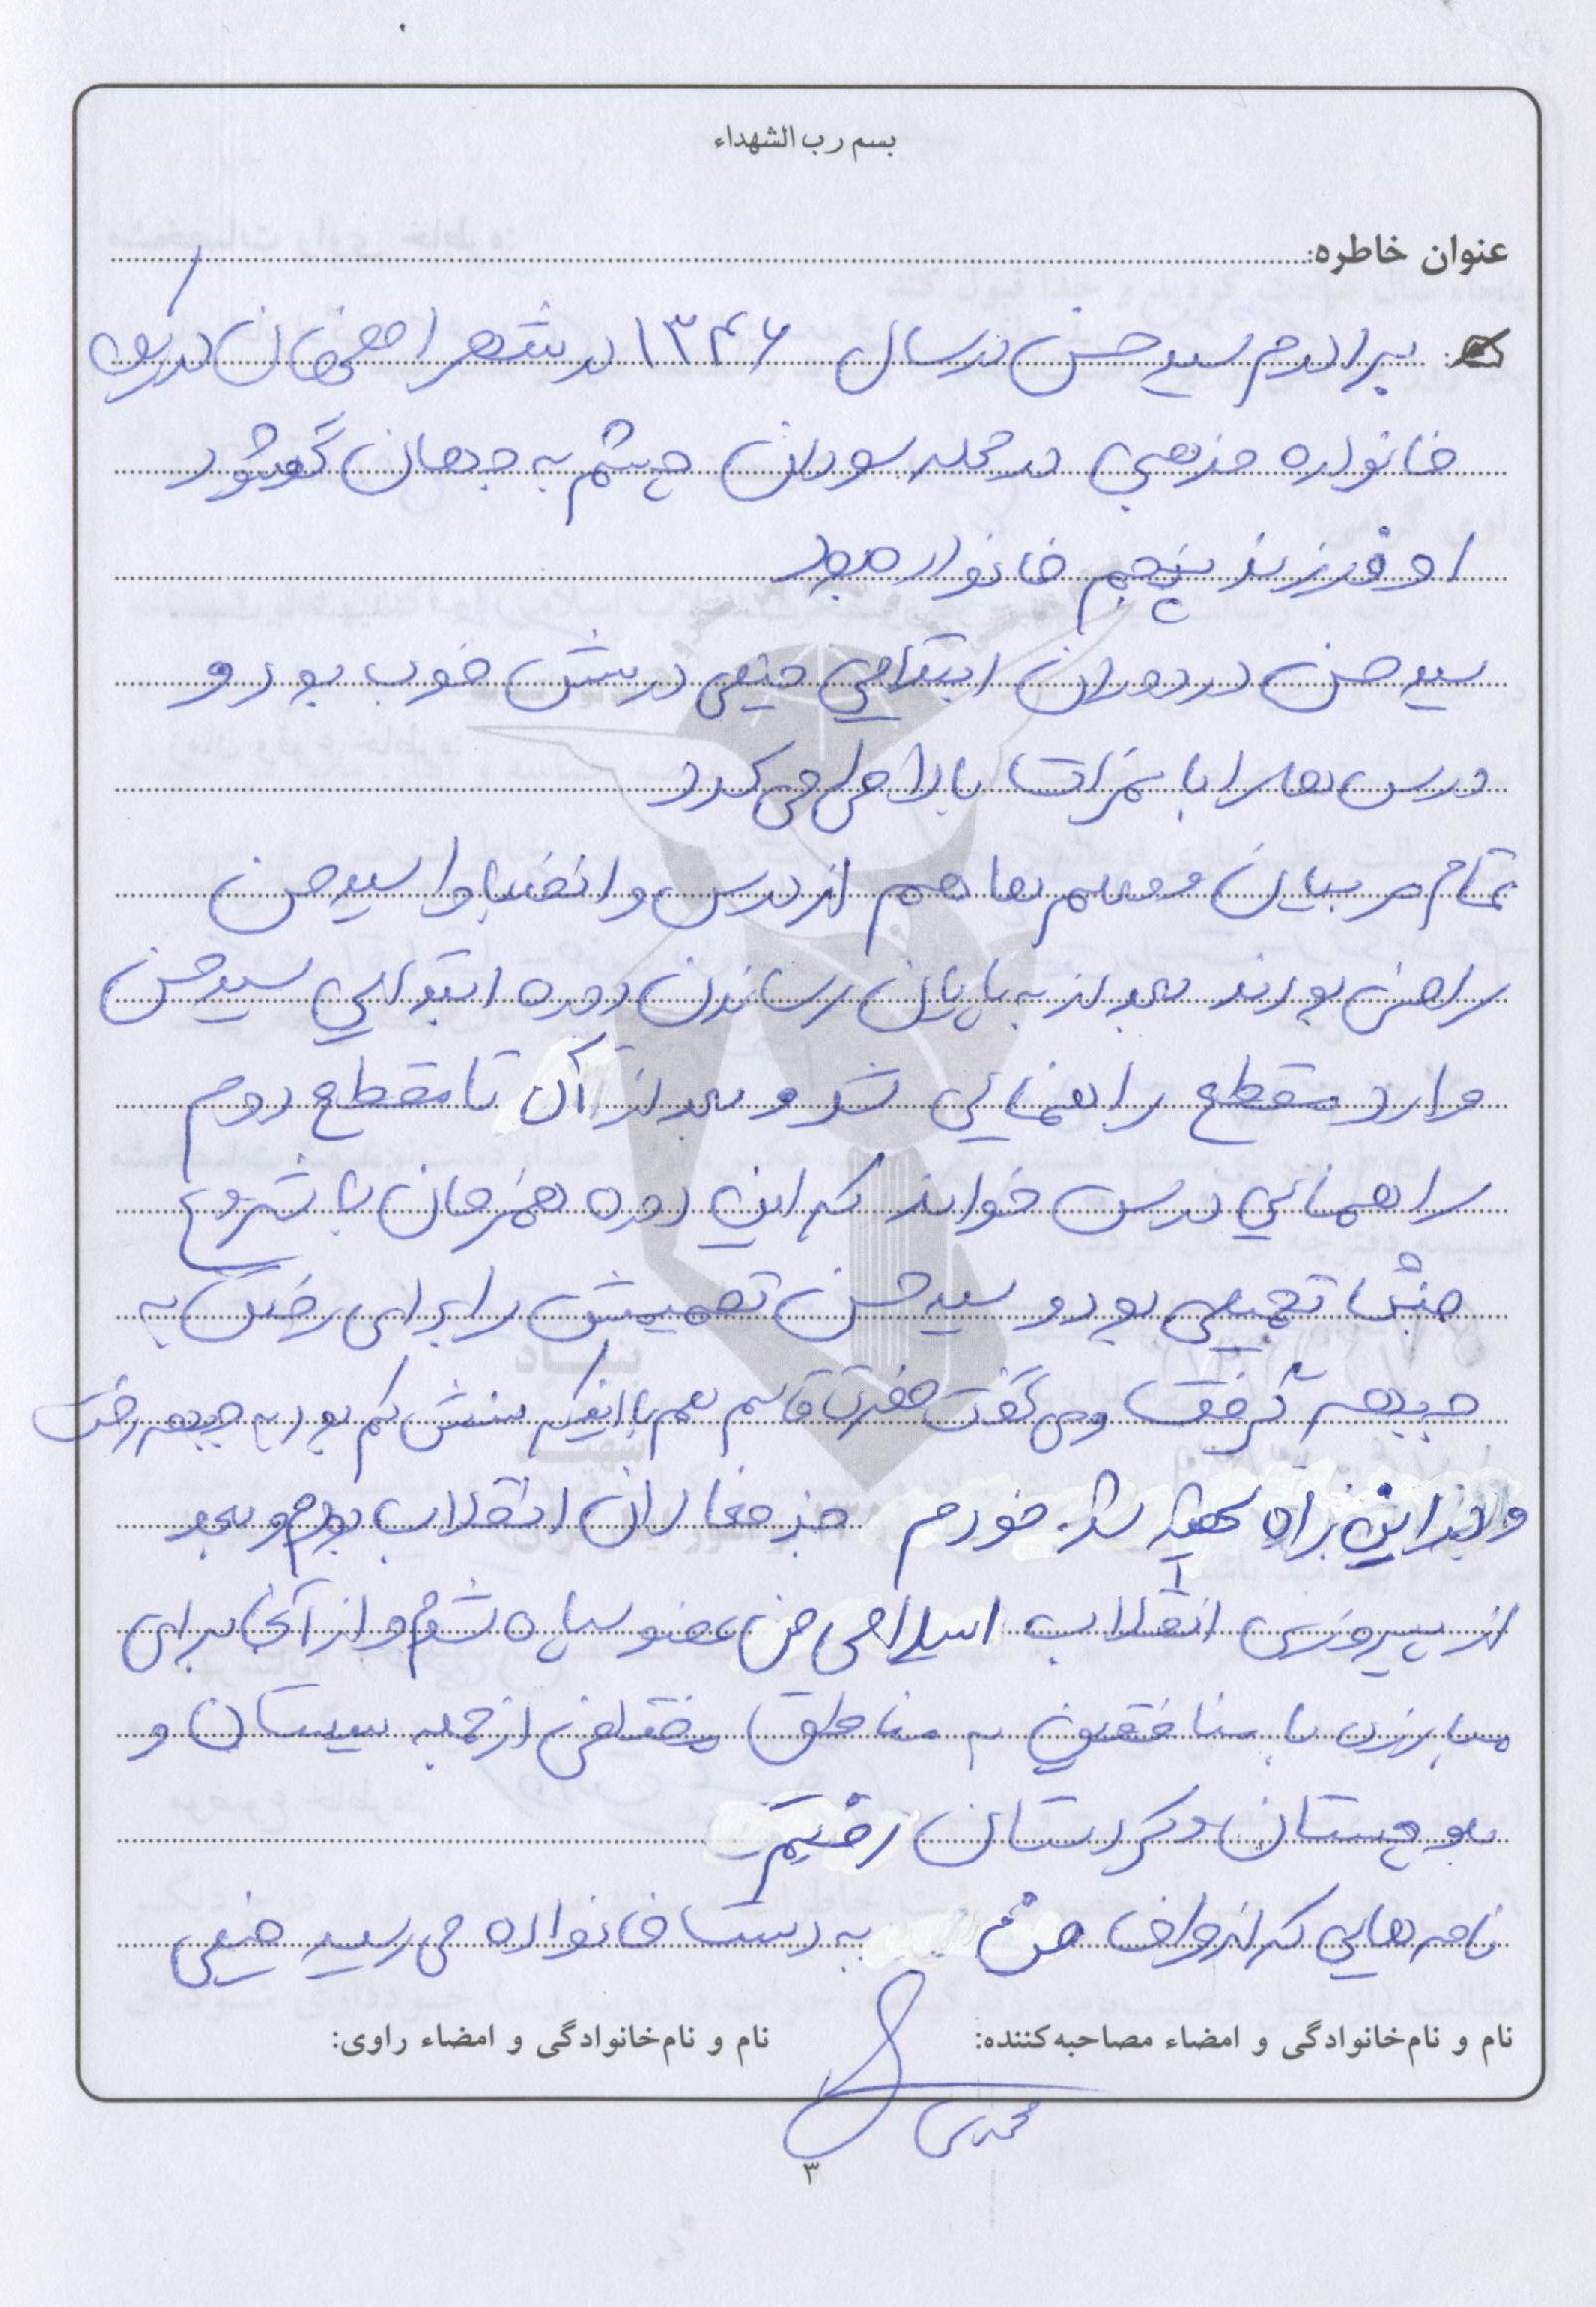 بسم رب الشهداء
عنوان خاطره:
برادرم سید حسن در سال ۱۳۴۶ در شهر اصفهان در یک
خانواده مذهبی در محله سودان چشم به جهان گشود
او فرزند پنجم خانواده بود
سید حسن در دوران ابتدایی خیلی درسش خوب بود و
درس ها را با نمرات بالا طی می کرد
تمام مربیان و معلم ها هم از درس و انضباط سید حسن
راضی بودند بعد از به پایان رساندن دوره ابتدایی سید حسن
وارد مقطع راهنمایی شد و بعد از آن تا مقطع دوم
راهنمایی درس خواند که این دوره همزمان با شروع
جنگ تحمیلی بود و سید حسن تصمیمش را برای رفتن به
جبهه گرفت و می گفت حضرت قاسم هم با اینکه سنش کم بود به جبهه رفت
و در این راه شهید شد. خودم جز فعالان انقلاب بودم و بعد
از پیروزی انقلاب اسلامی من عضو سپاه شدم و از آنجا برای
مبارزه با منافقین به مناطق مختلفی از جمله سیستان و
بلوچستان و کردستان رفتیم
نامه هایی که از طرف من به دست خانواده می رسید خیلی
نام و نام‌خانوادگی و امضاء مصاحبه‌کننده:
نام و نام‌خانوادگی و امضاء راوی:
۳